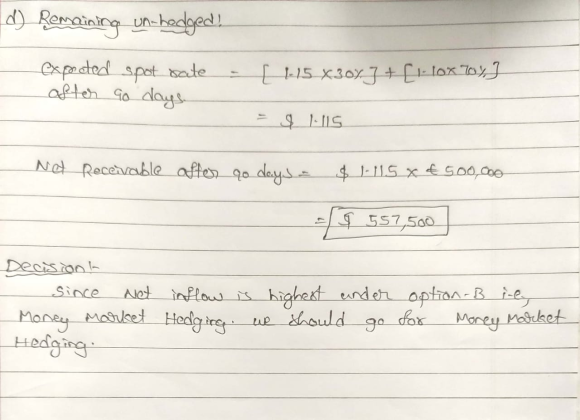 d) Remaining un-hedged!
Expected spot rate = [1.15 X30%] + [1.10x70%]
after 90 days
= $ 1.115
Net Receivable after 90 days = $ 1.115 x € 500,000
= $ 557,500
Decision:-
Since Net inflow is highest under option-B i.e,
Money Market Hedging. we should go for Money Market
Hedging.